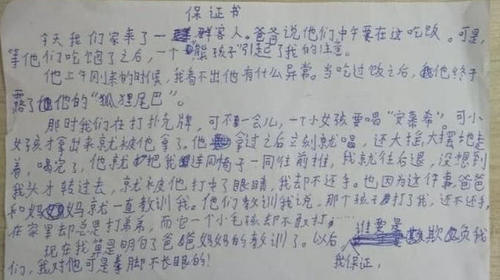 保证书
今天我们家来了一群客人。爸爸说他们中午要在这吃饭。可是,
等他们吃饱了之后,一个"熊孩子"引起了我的注意。
他上午刚来的时候,我看不出他有什么异常。当吃过饭之后,他终于
露了他的"狐狸尾巴"。
那时我们在打扑克牌,可不一会儿,一个小女孩要喝"安慕希",可小
女孩才拿出来就被他拿了。他拿过之后立刻就喝,还大摇大摆地走
着,喝完了,他就把我连同椅子一同往前推,我就往后退,没想到
我头才转过去,就被他打中了眼睛,我却不还手。也因为这件事,爸爸
和妈妈就一直教训我。他们教训我说,那个孩子打了我,还不还手,
在家里却总是打弟弟,而它一个小毛孩却不敢打。
现在我算是明白了爸爸妈妈的教训了。以后谁要是敢欺负我
们,我对他可是拳脚不长眼的!
我保证,